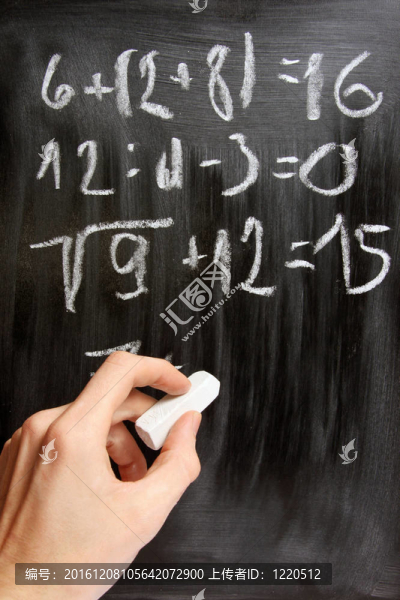 6+(2+8)=16
12:4-3=0
√9+12=15
汇图网
www.huitu.com
编号:20161208105642072900 上传者ID：1220512